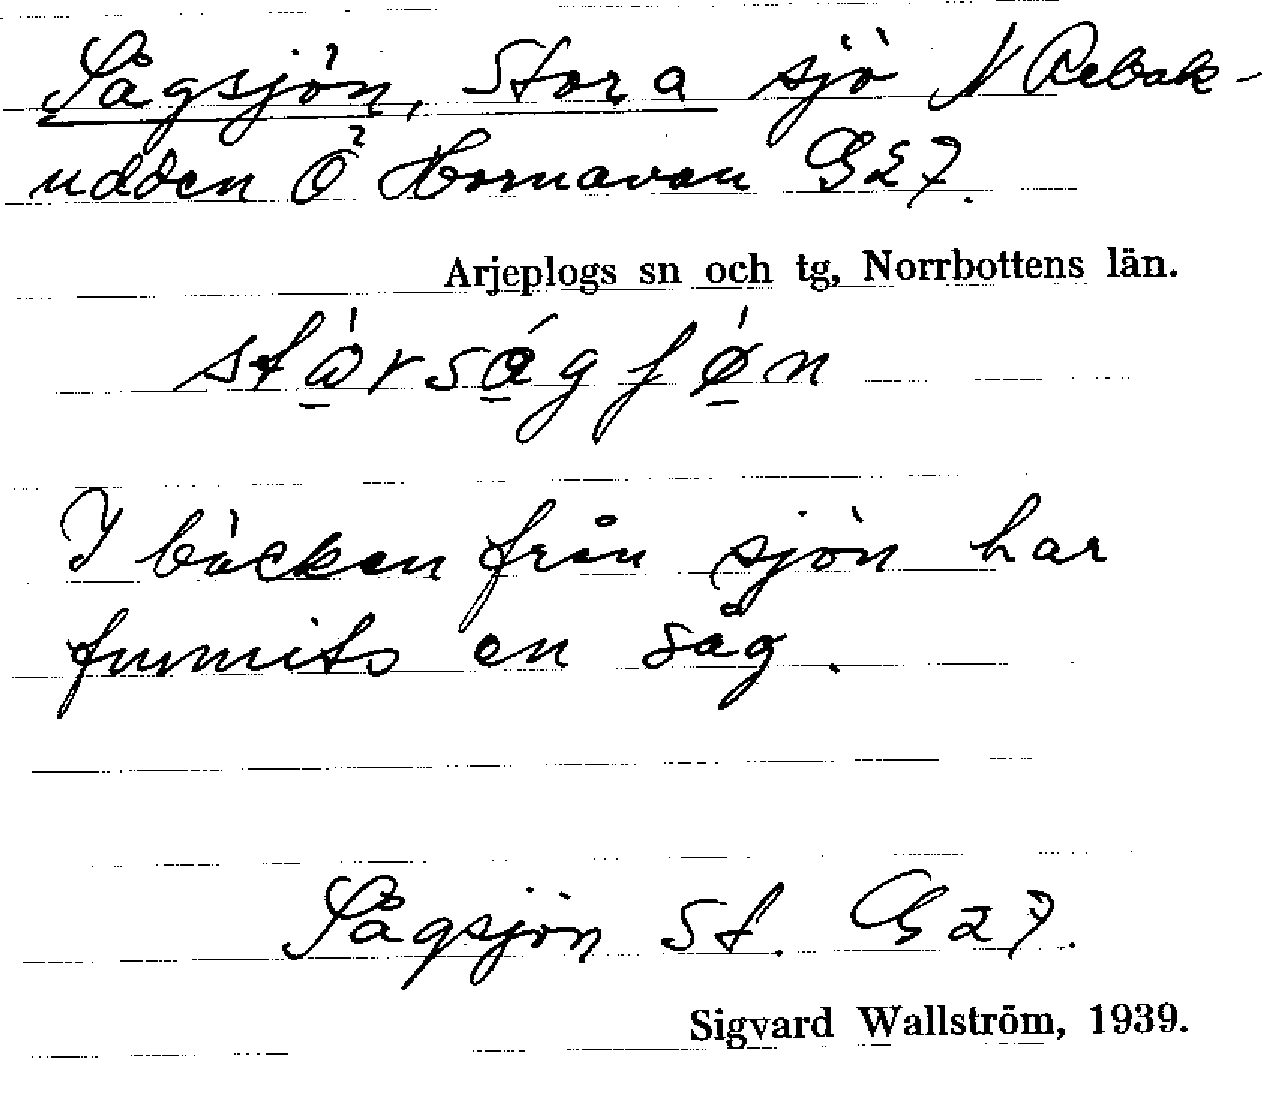 Sågsjön, Stora sjö N Rebak-
udden Ö Hornavan G27.
Arjeplogs sn och tg, Norrbottens län.
I bäcken från sjön har
funnits en såg.
Sågsjön St. G27.
Sigvard Wallström, 1939.